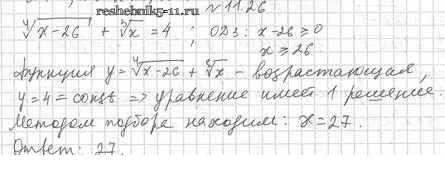 reshebnik5-11.ru № 11.26
∜x-26 + ∛x = 4 ; ОДЗ: x-26 ≥ 0
x ≥ 26
Функция y = ∜x-26 + ∛x - возрастающая,
y = 4 = const => уравнение имеет 1 решение.
Методом подбора находим: x = 27.
Ответ: 27.